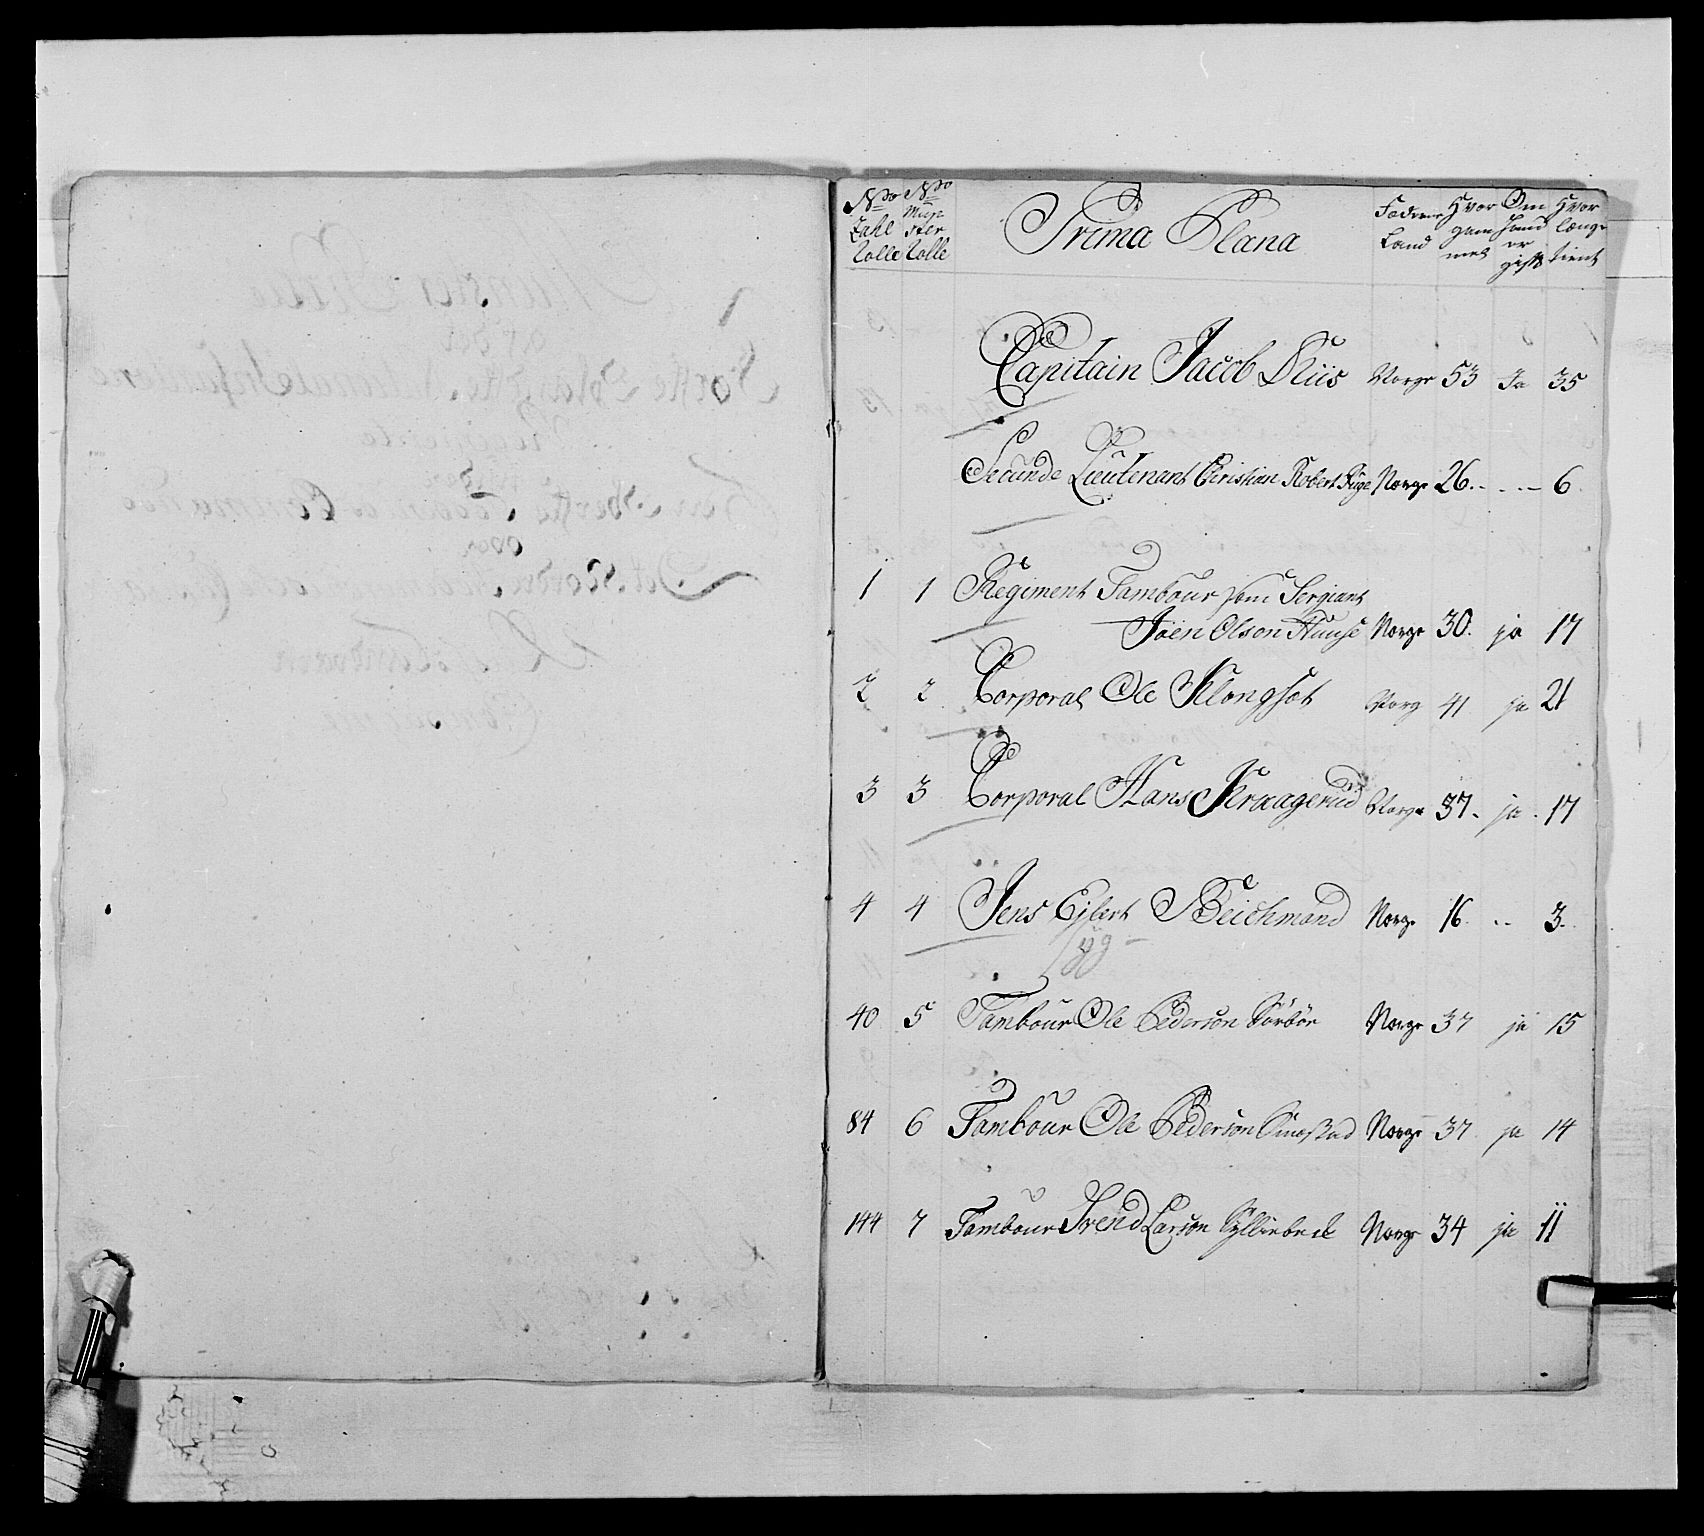 No No Prima Plana Fædrene Hvor Om Hvor
Zahl Mün Land gam hand længe
Rolle ster mel er tient
Rolle gift
Capitain Jacob Kiis Norge 53 Ja 35
Secunde Lieutenant Christian Robert Norge 26 - - - 6
1 1 Regiment Tambour som Sergiant
Joen Olson Norge 30. ja 17
2 2 Corporal Ole Klongsot Norg 41 ja 21
3 3 Corporal Hans Kraagerud Norge 37. ja 17
4 4 Jens Ejlert Beichmand Norge 16 - - 3.
Syg -
40 5 Tambour Ole Pederson Sörbör Norge 37 ja 15
84 6 Tambour Ole Pederson Norge 37 ja 14
144 7 Tambour Svend Larson Norge 34 ja 11